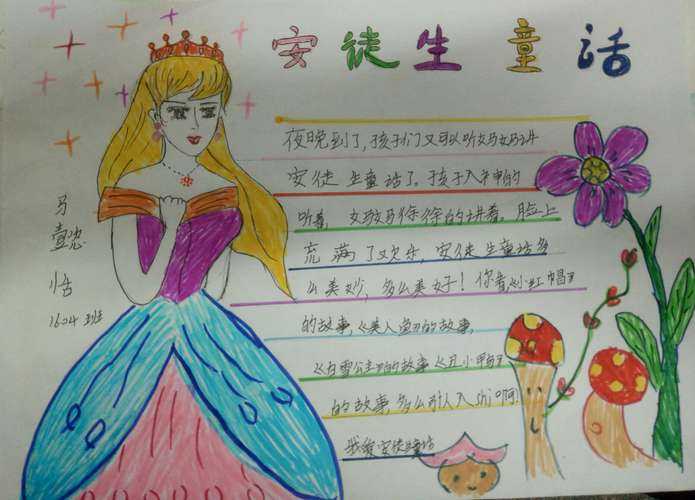 安徒生童话
夜晚到了,孩子们又可以听妈妈讲
安徒生童话了。孩子入神的
听着,妈妈徐徐的讲着。脸上
充满了欢乐,安徒生童话多
么美妙,多么美好!你看《小红帽》
的故事,《美人鱼》的故事,
《白雪公主》的故事《丑小鸭》
的故事,多么引人入胜啊!
我爱安徒生童话
马
壹
恬
1604班